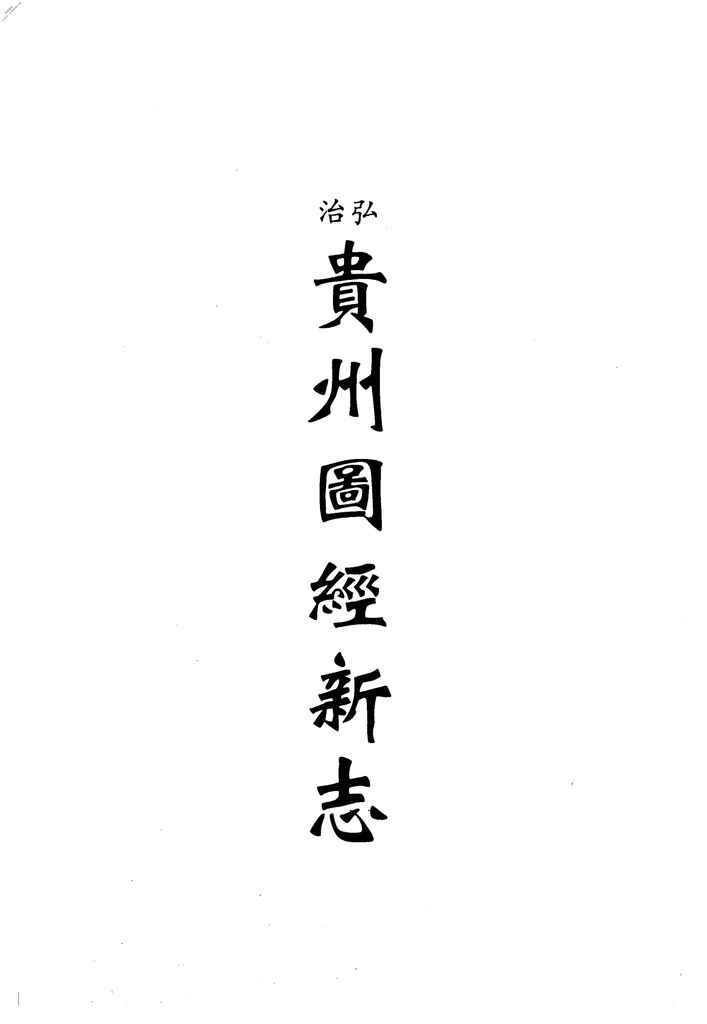 弘治
貴州圖經新志